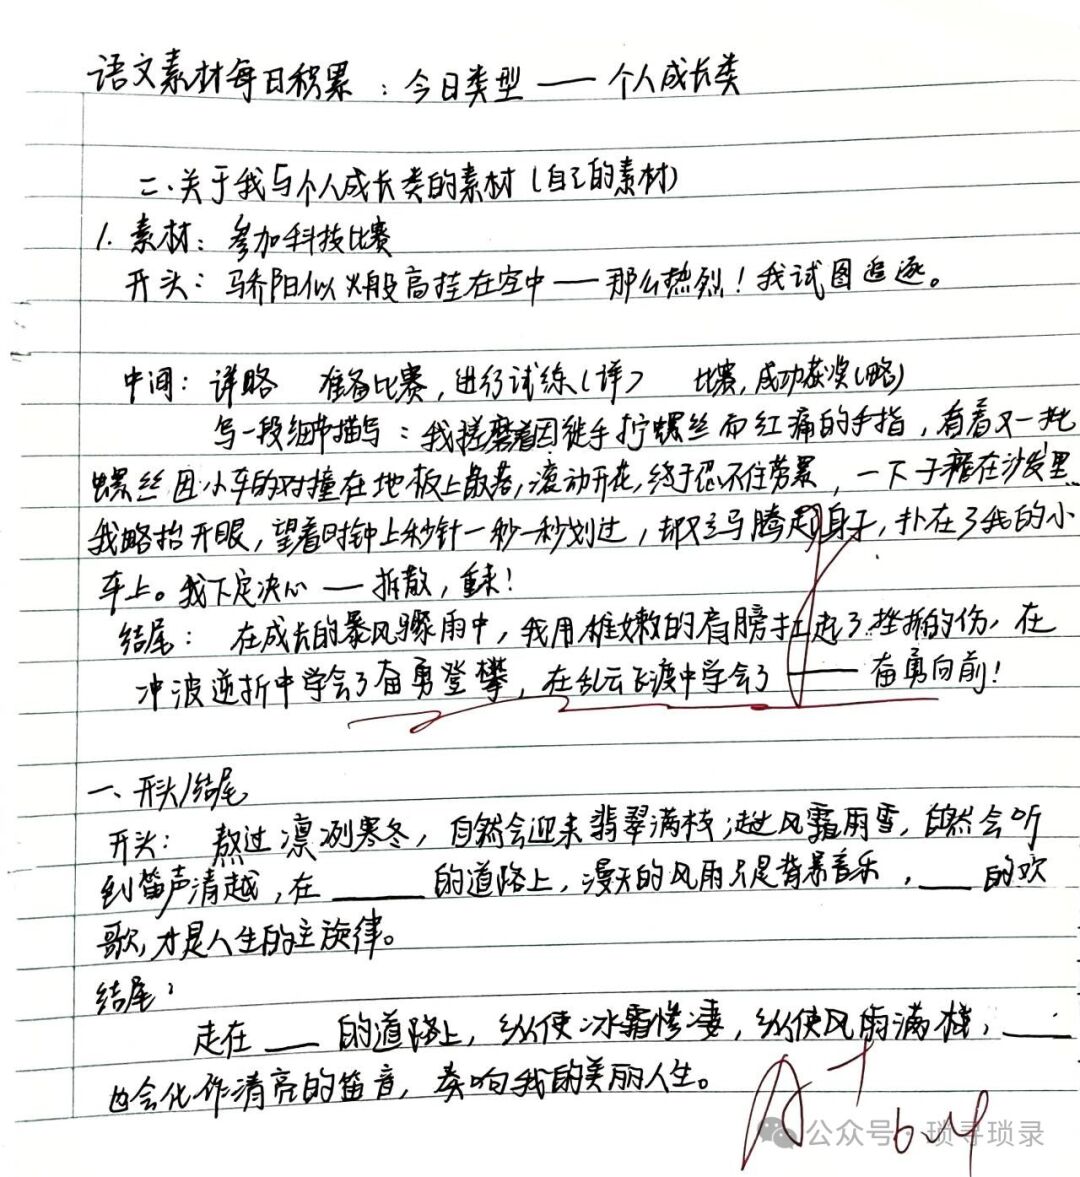 语文素材每日积累：今日类型——个人成长类
二、关于我与个人成长类的素材（自己的素材）
1. 素材：参加科技比赛
开头：骄阳似火般高挂在空中——那么热烈！我试图追逐。
中间：详略 准备比赛，进行试练（详） 比赛，成功获奖（略）
写一段细节描写：我搓磨着因徒手拧螺丝而红痛的手指，看着又一批
螺丝因小车的对撞在地板上散落，滚动开花，终于忍不住劳累，一下子瘫在沙发里
我略抬开眼，望着时钟上秒针一秒一秒划过，却又立马腾起身子，扑在了我的小
车上。我下定决心——拆散，重来！
结尾：在成长的暴风骤雨中，我用稚嫩的肩膀扛起了挫折的伤，在
冲波逆折中学会了奋勇登攀，在乱云飞渡中学会了——奋勇向前！
一、开头/结尾
开头：熬过凛冽寒冬，自然会迎来翡翠满枝；越过风霜雨雪，自然会听
到笛声清越，在____的道路上，漫天的风雨只是背景音乐，___的欢
歌，才是人生的主旋律。
结尾：
走在___的道路上，纵使冰霜惨凄，纵使风雨满栈，___
也会化作清亮的笛音，奏响我的美丽人生。
A+
公众号·琐寻琐录